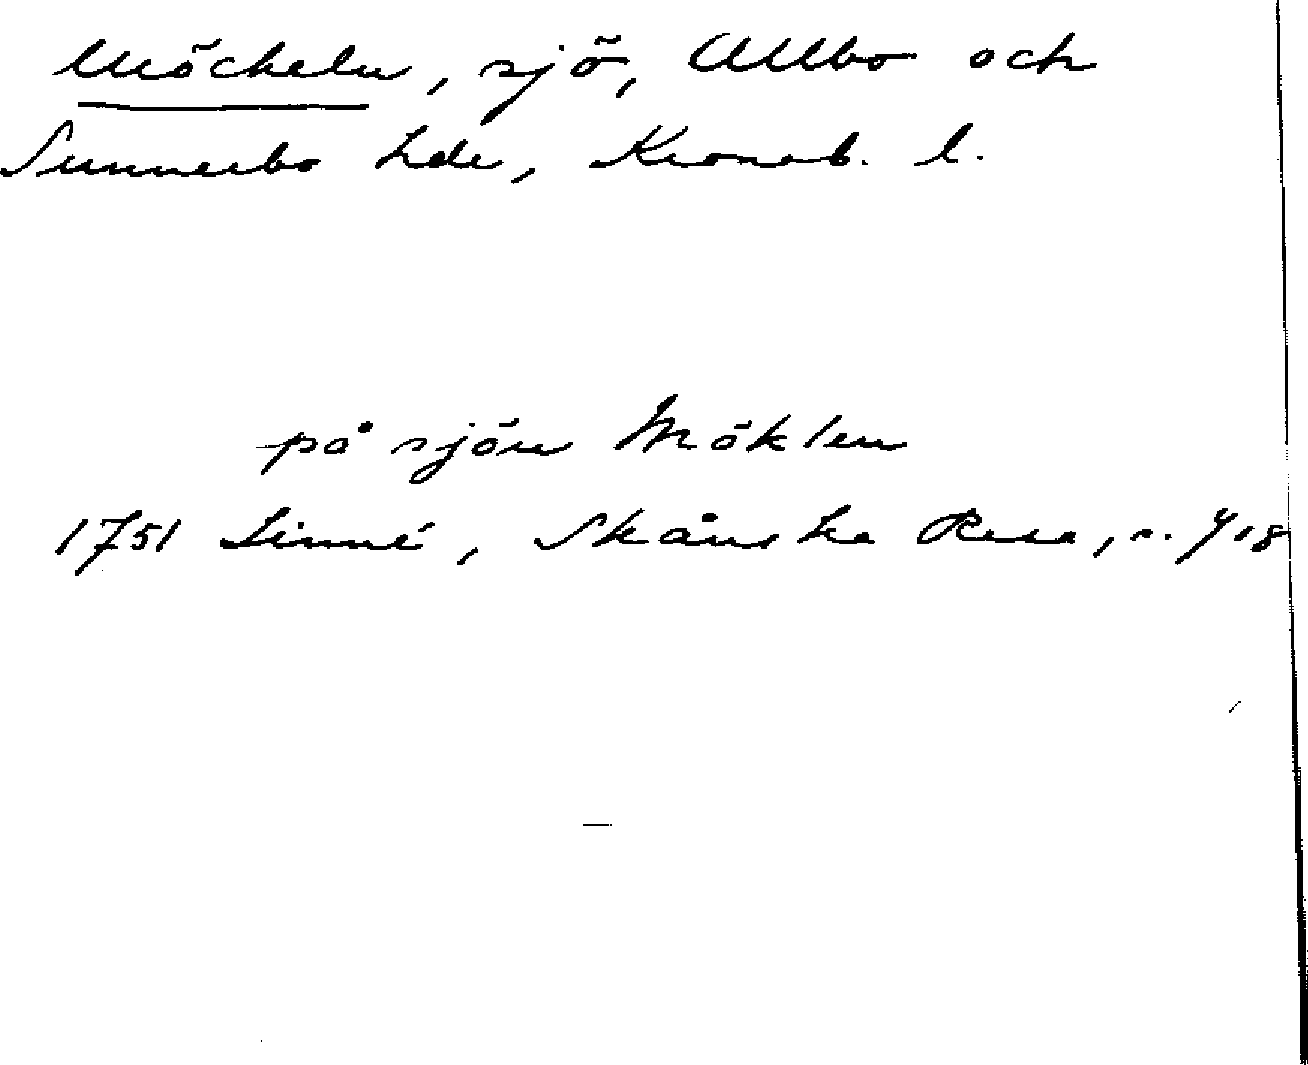 Möckeln, sjö, Allbo och
Sunnerbo hde, Kronob. l.
på sjön Möklen
1751 Linné, Skånska Resa, s. 418